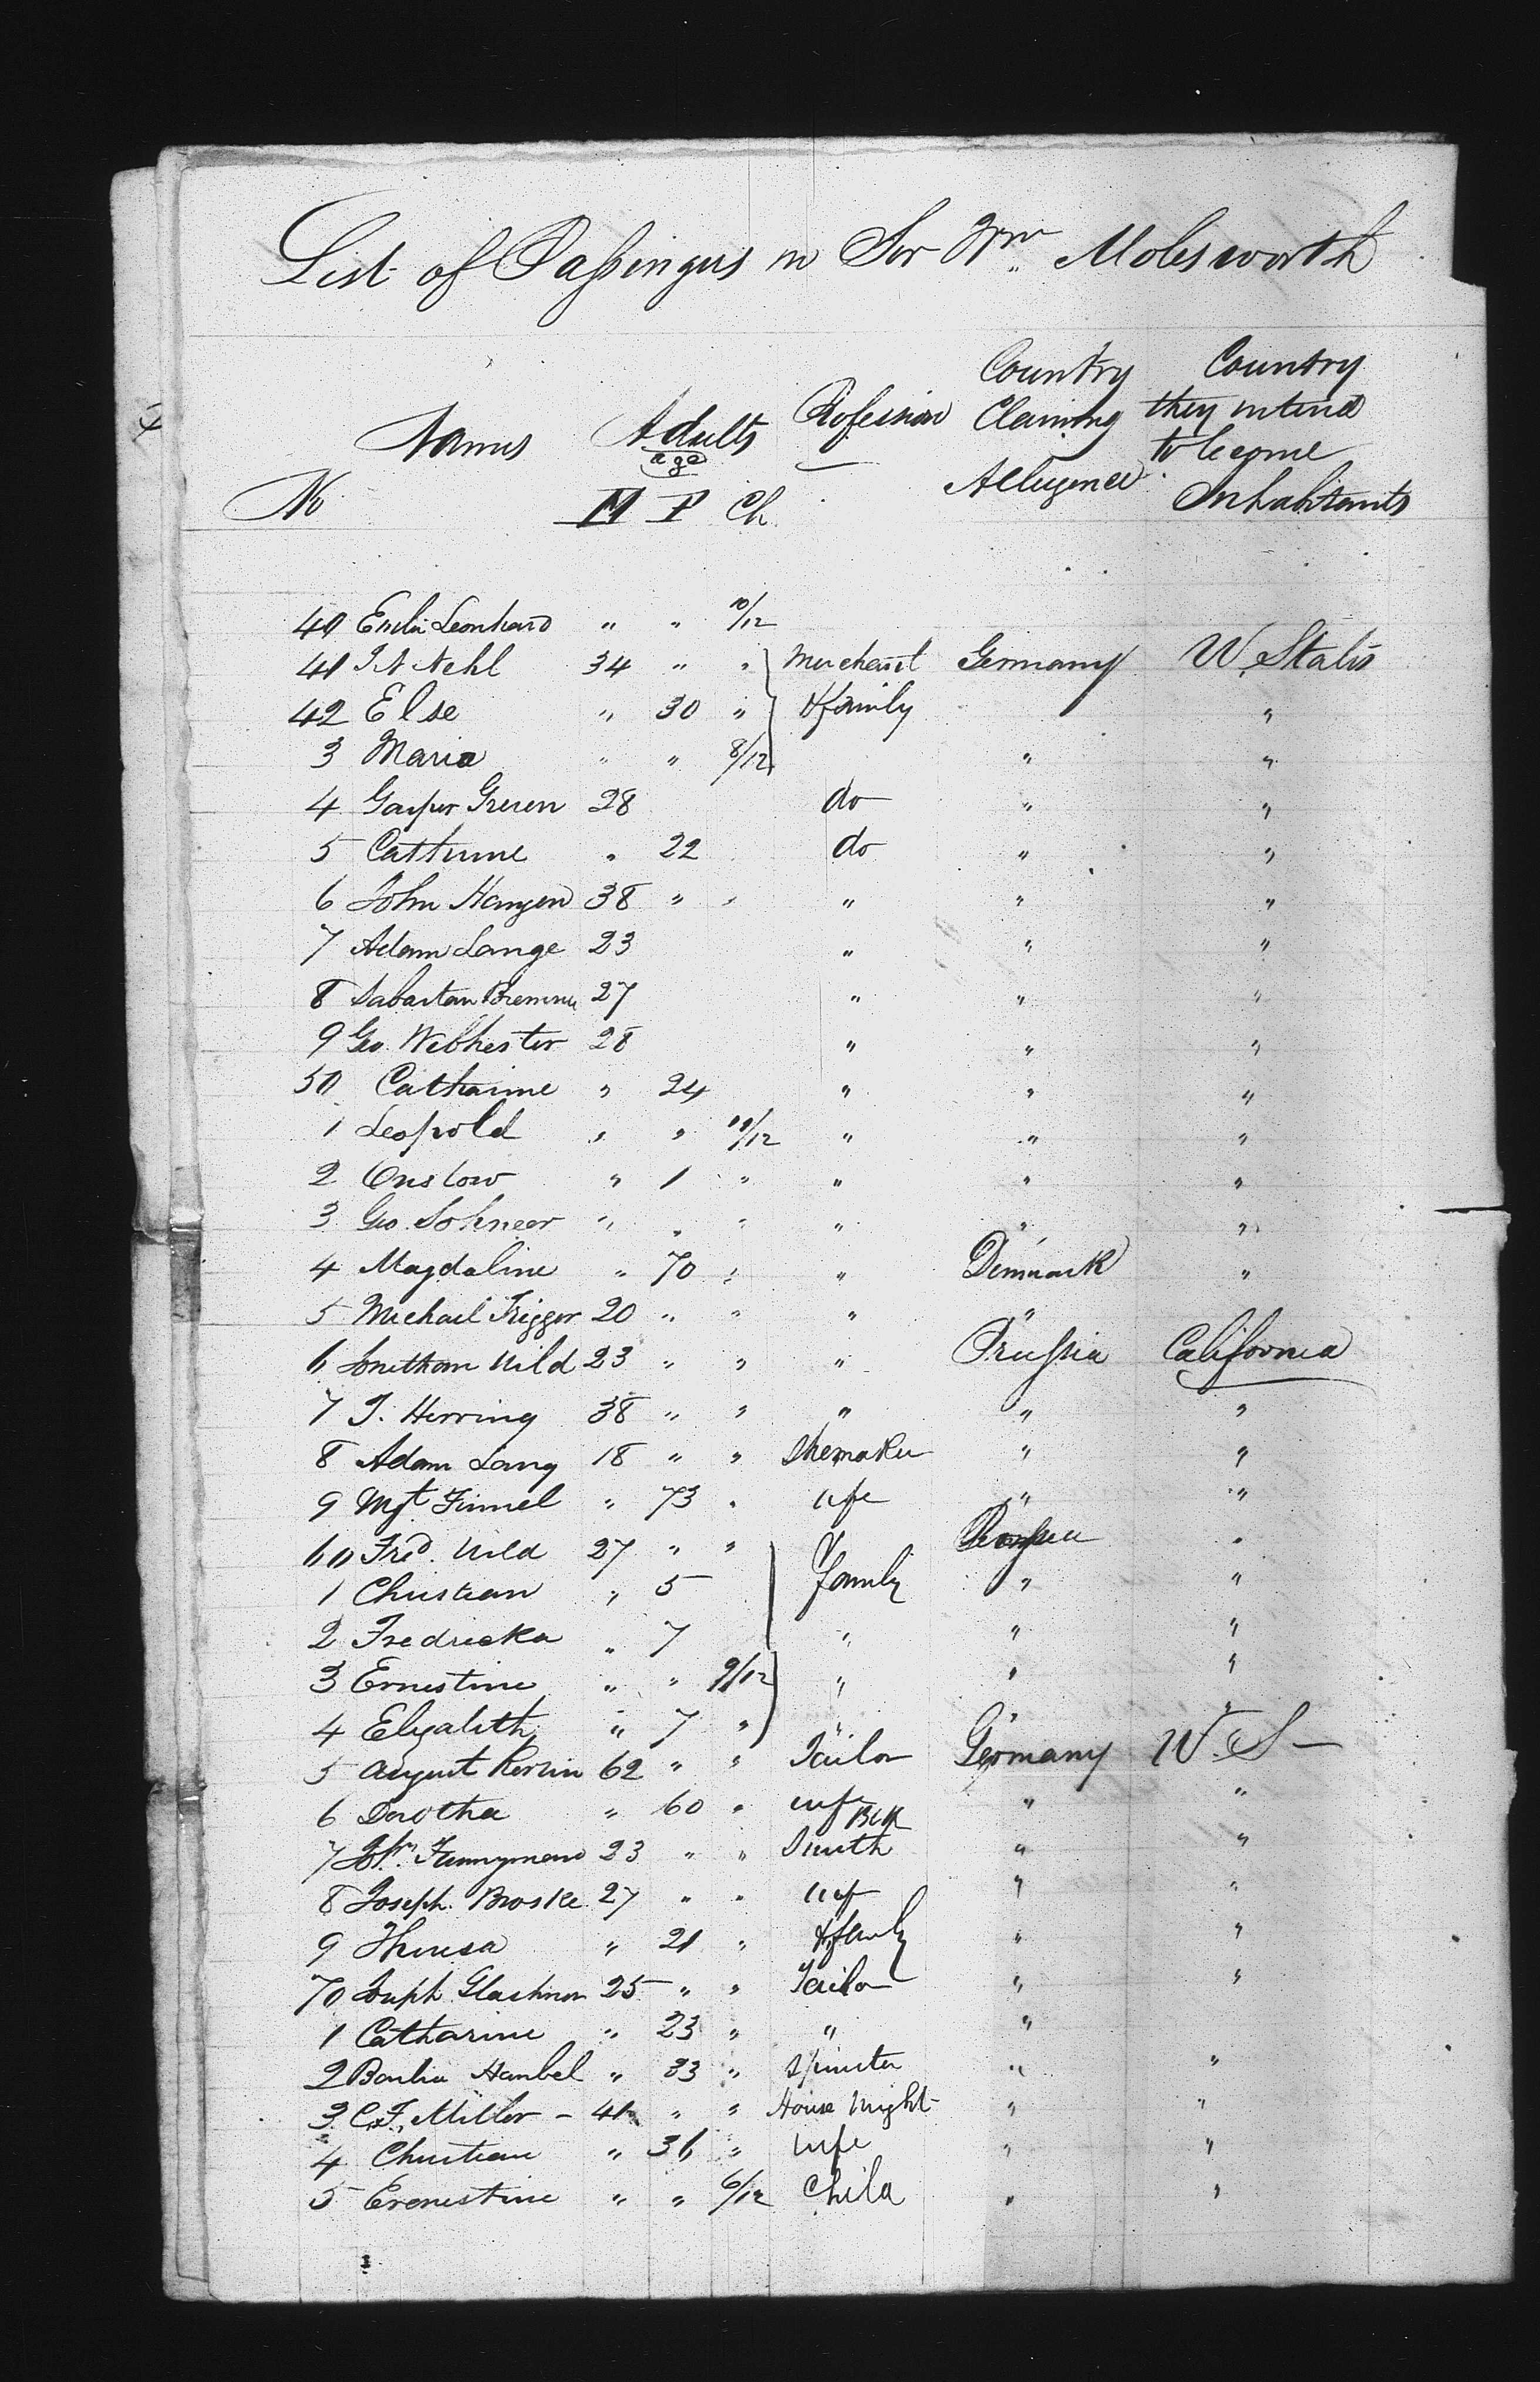 List of Passingers in Sir Wm. Molesworth
No Names Adults age M F Ch Profession Country Claiming Allugence Country they intend to become Inhabitants
40 Leonhard " " 10/12
41 J N Nehl 34 " " Merchant Germany U. States
42 Else " 30 " & family "
3 Maria " " 8/12 " "
4 Gasper Greuen 28 do " "
5 Cathrine " 22 do " "
6 John Hangen 38 " " " " "
7 Adam Lange 23 " " "
8 Sabastan 27 " " "
9 Geo Webhester 28 " " "
50 Catharine " 24 " " "
1 Leopold " " 11/12 " " "
2 Onslow " 1 " " " "
3 Geo. Sohneer " " " " " "
4 Magdaline " 70 " " Denmark "
5 Michael Frigger 20 " " " " "
6 Jonathan Wild 23 " " " Prussia California
7 J. Herring 38 " " " " "
8 Adam Lang 18 " " Shemaker " "
9 Mgt Finnel " 73 " wife " "
60 Fred. Wild 27 " " & "
1 Christian " 5 family " "
2 Fredricka " 7 " " "
3 Ernestine " " 9/12 " " "
4 Elyabeth " 7 " " " "
5 August Kerlin 62 " " Tailor Germany U. S -
6 Dorothea " 60 " wife " "
7 Jos. 23 " " Blk Smith " "
8 Joseph Broske 27 " " wife " "
9 Theresa " 21 " & family " "
70 Joseph Glashner 25 " " Tailor " "
1 Catharine " 23 " " "
2 Hanbel " 33 " Spinster " "
3 C. F. Miller - 41 " " House Wright " "
4 Christian " 36 " wife " "
5 Erenestine " " 6/12 Child " "